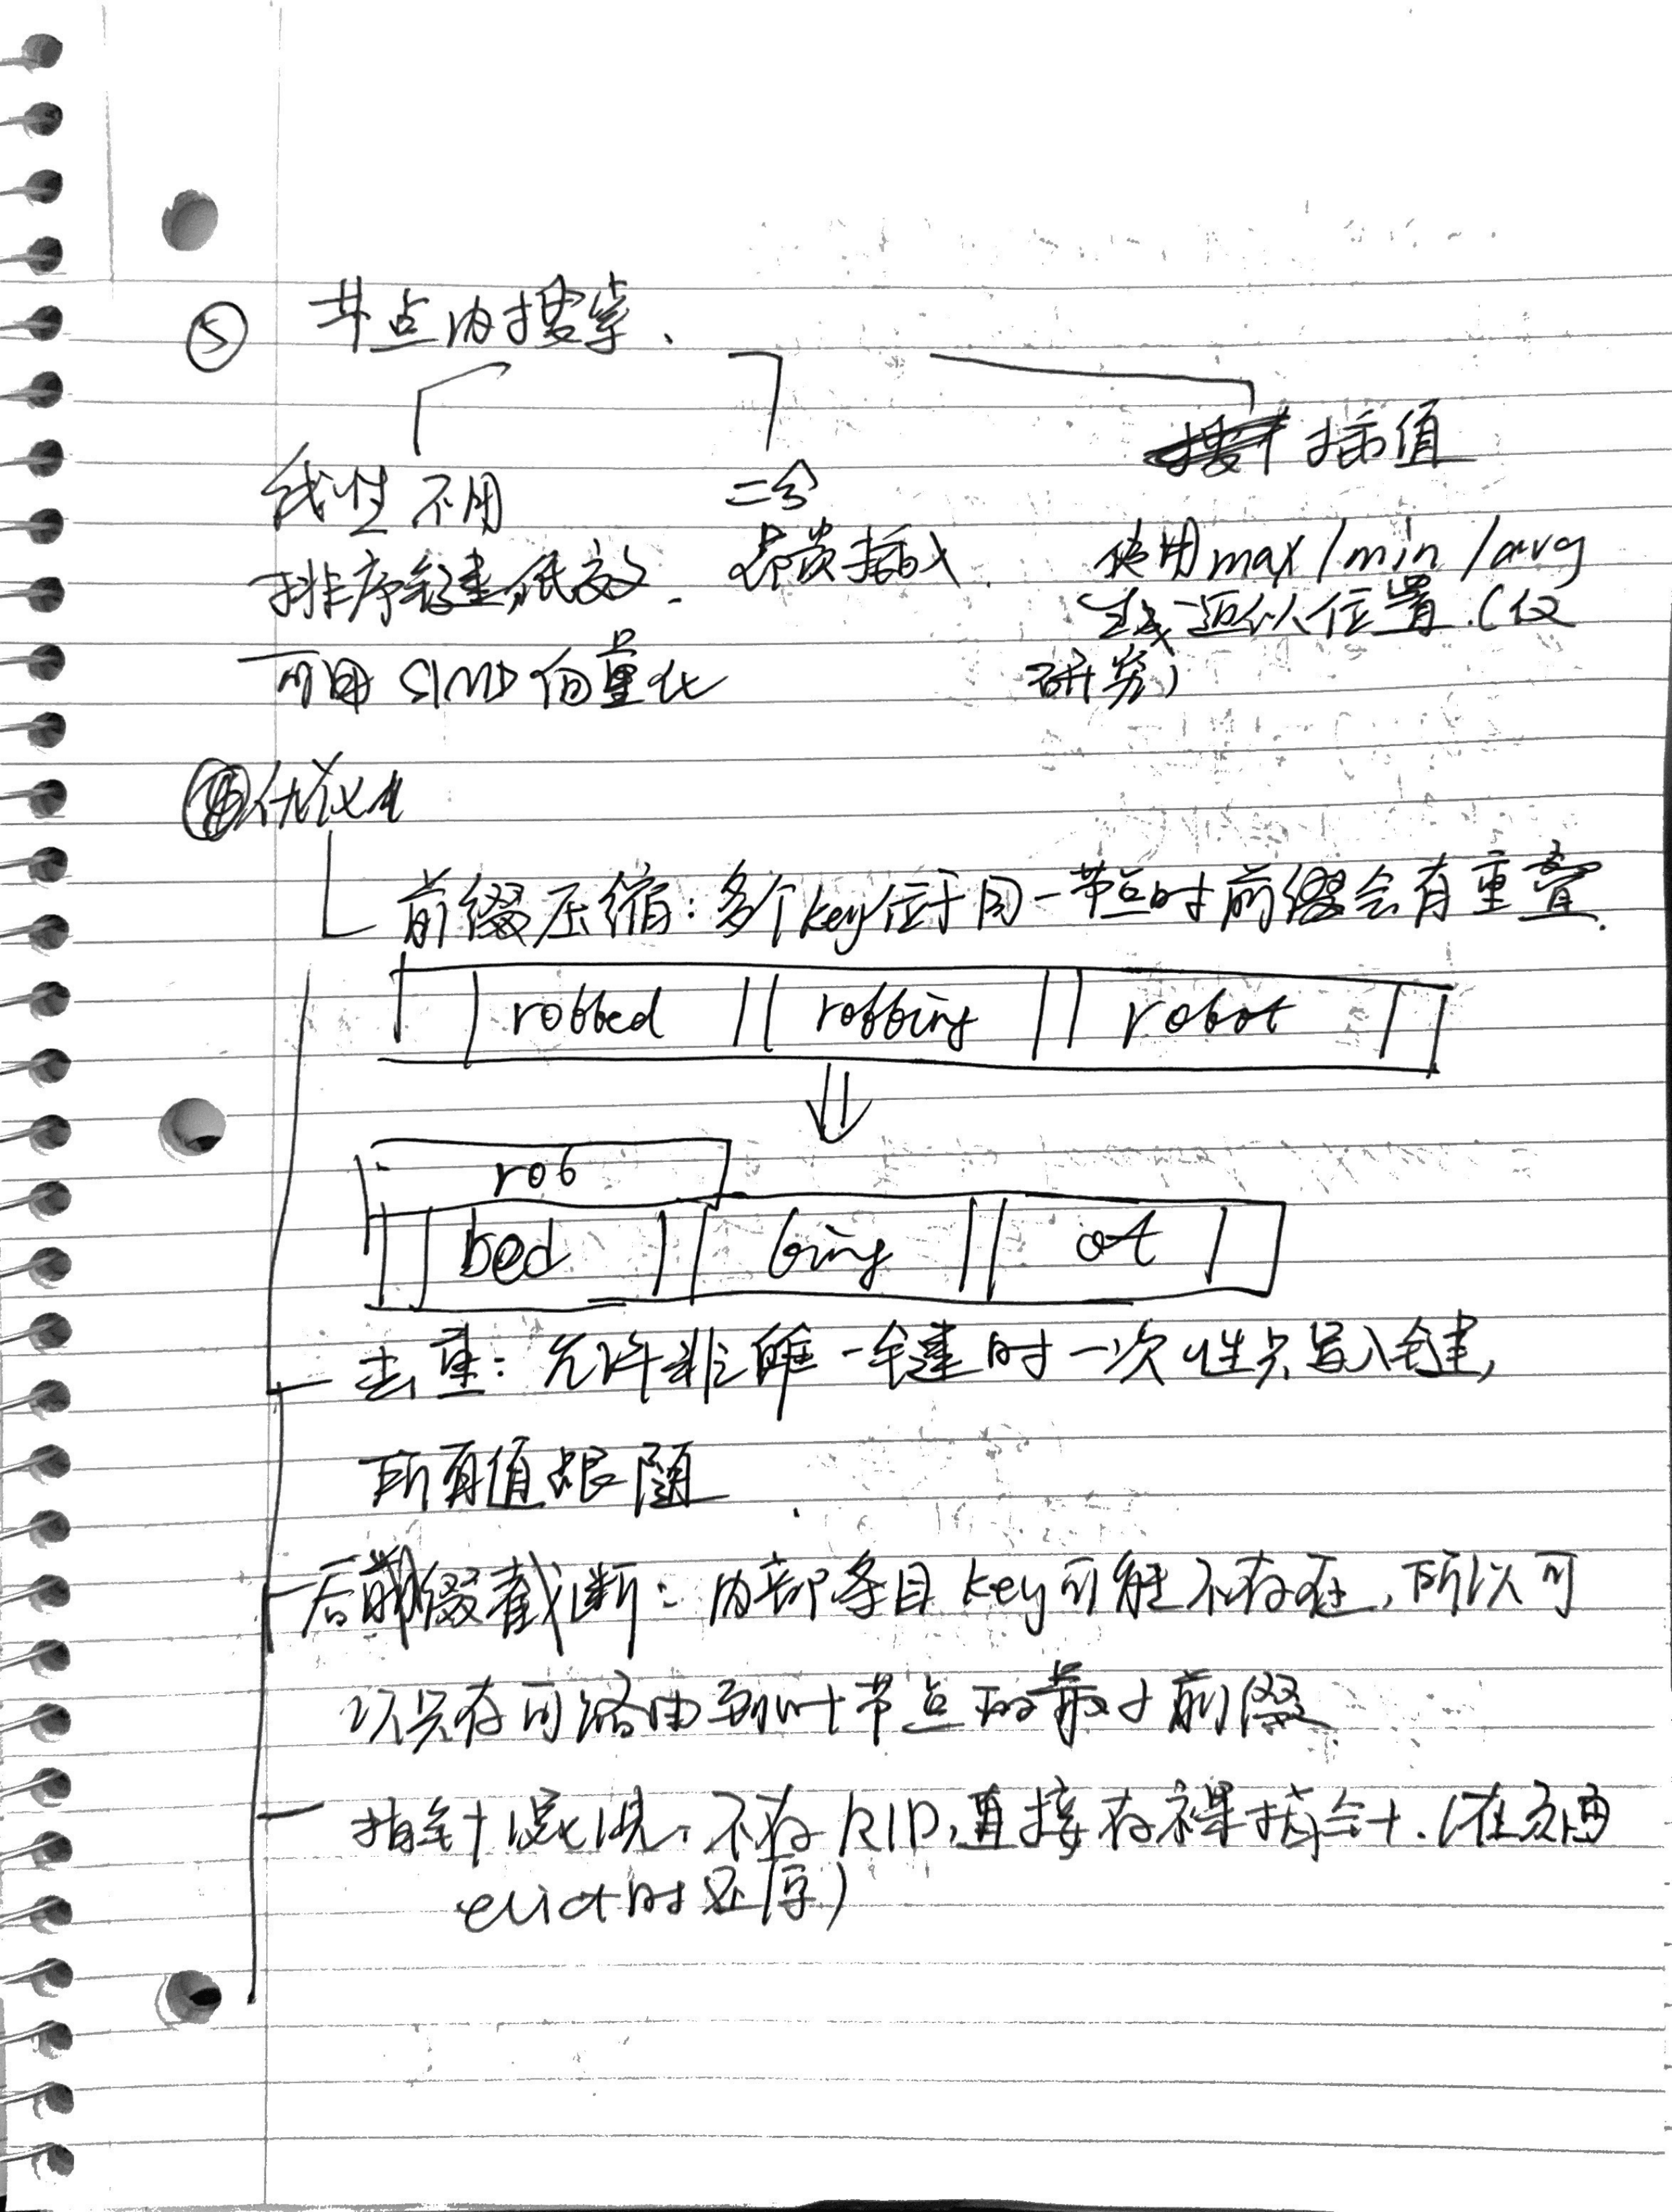 ⑤ 节点内搜索、
插值
线性 不用 二分
排序键,低效. 昂贵插入. 使用max/min/avg
可用 SIMD 向量化 生成近似位置.(仅
研究)
优化
前缀压缩:多个key位于同一节点时前缀会有重叠.
robbed robbing robot
rob
bed bing ot
去重:允许非唯一键时一次性只写入键,
所有值跟随
后缀截断:内部条目key可能不存在,所以可
以只存可路由到叶节点的最小前缀
指针混淆:不存RID,直接存裸指针.(在页面
evict时还原)